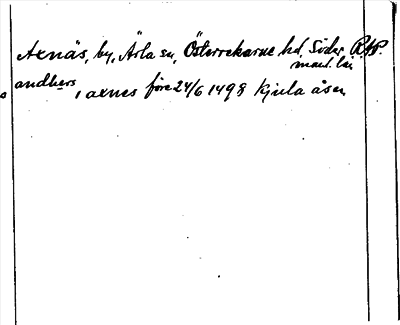 Axnäs, by, Ärla sn, Österrekarne hd, Söder
manl. län
andhers, axnes före 24/6 1498 Kjula åsen